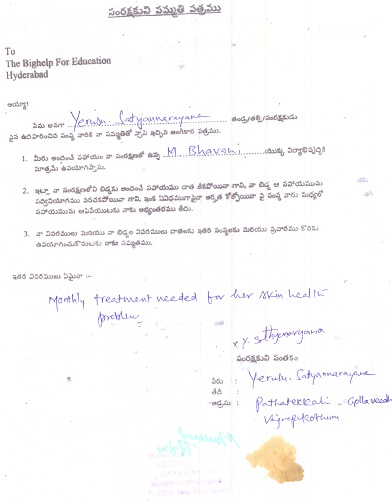 సంరక్షకుని సమ్మతి పత్రము
To
The Bighelp For Education
Hyderabad
అయ్యా!
నేను అనగా Yerusu. Satyannarayana తండ్రి/తల్లి/సంరక్షకుడు
పైన ఉదహరించిన సంస్థ వారికి నా సమ్మతితో వ్రాసి ఇచ్చిన అంగీకార పత్రము.
1. మీరు అందించే సహాయం నా సంరక్షణలో ఉన్న M. Bhavani యొక్క విద్యాభివృద్ధికి
మాత్రమే ఉపయోగిస్తాను.
2. ఇట్లా నా సంరక్షణలోని బిడ్డకు అందించే సహాయము దాత లేకపోయినా గాని, నా బిడ్డ ఆ సహాయమును
సద్వినియోగము పరచకపోయినా గాని, ఇంక ఏవిధముగానైనా అర్హత కోల్పోయినా పై సంస్థ వారు మధ్యలో
సహాయమును ఆపివేయుటకు నాకు అభ్యంతరము లేదు.
3. నా వివరములు మరియు నా బిడ్డల వివరములు దాతలకు ఇతర సంస్థలకు మరియు ప్రచారము కొరకు
ఉపయోగించుకొనుటకు నాకు సమ్మతము.
ఇతర వివరములు ఏమైనా :-
Monthly treatment needed for her skin health
problem
సంరక్షకుని సంతకం
పేరు : Yerusu. Satyannarayana
తేది :
అడ్రసు : Pathatekkali - Gollaveedh